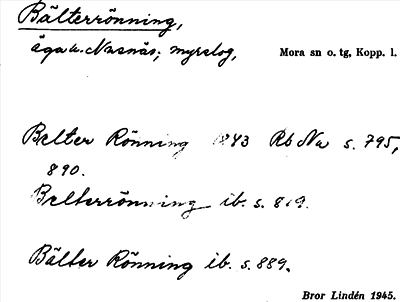 Bälterrönning,
äga u. Nusnäs; myrslog,
Mora sn o. tg, Kopp. l.
Belter Rönning 1843 Rb Na s. 795,
890.
Belterrönning ib. s. 819.
Bälter Rönning ib. s. 889.
Bror Lindén 1945.